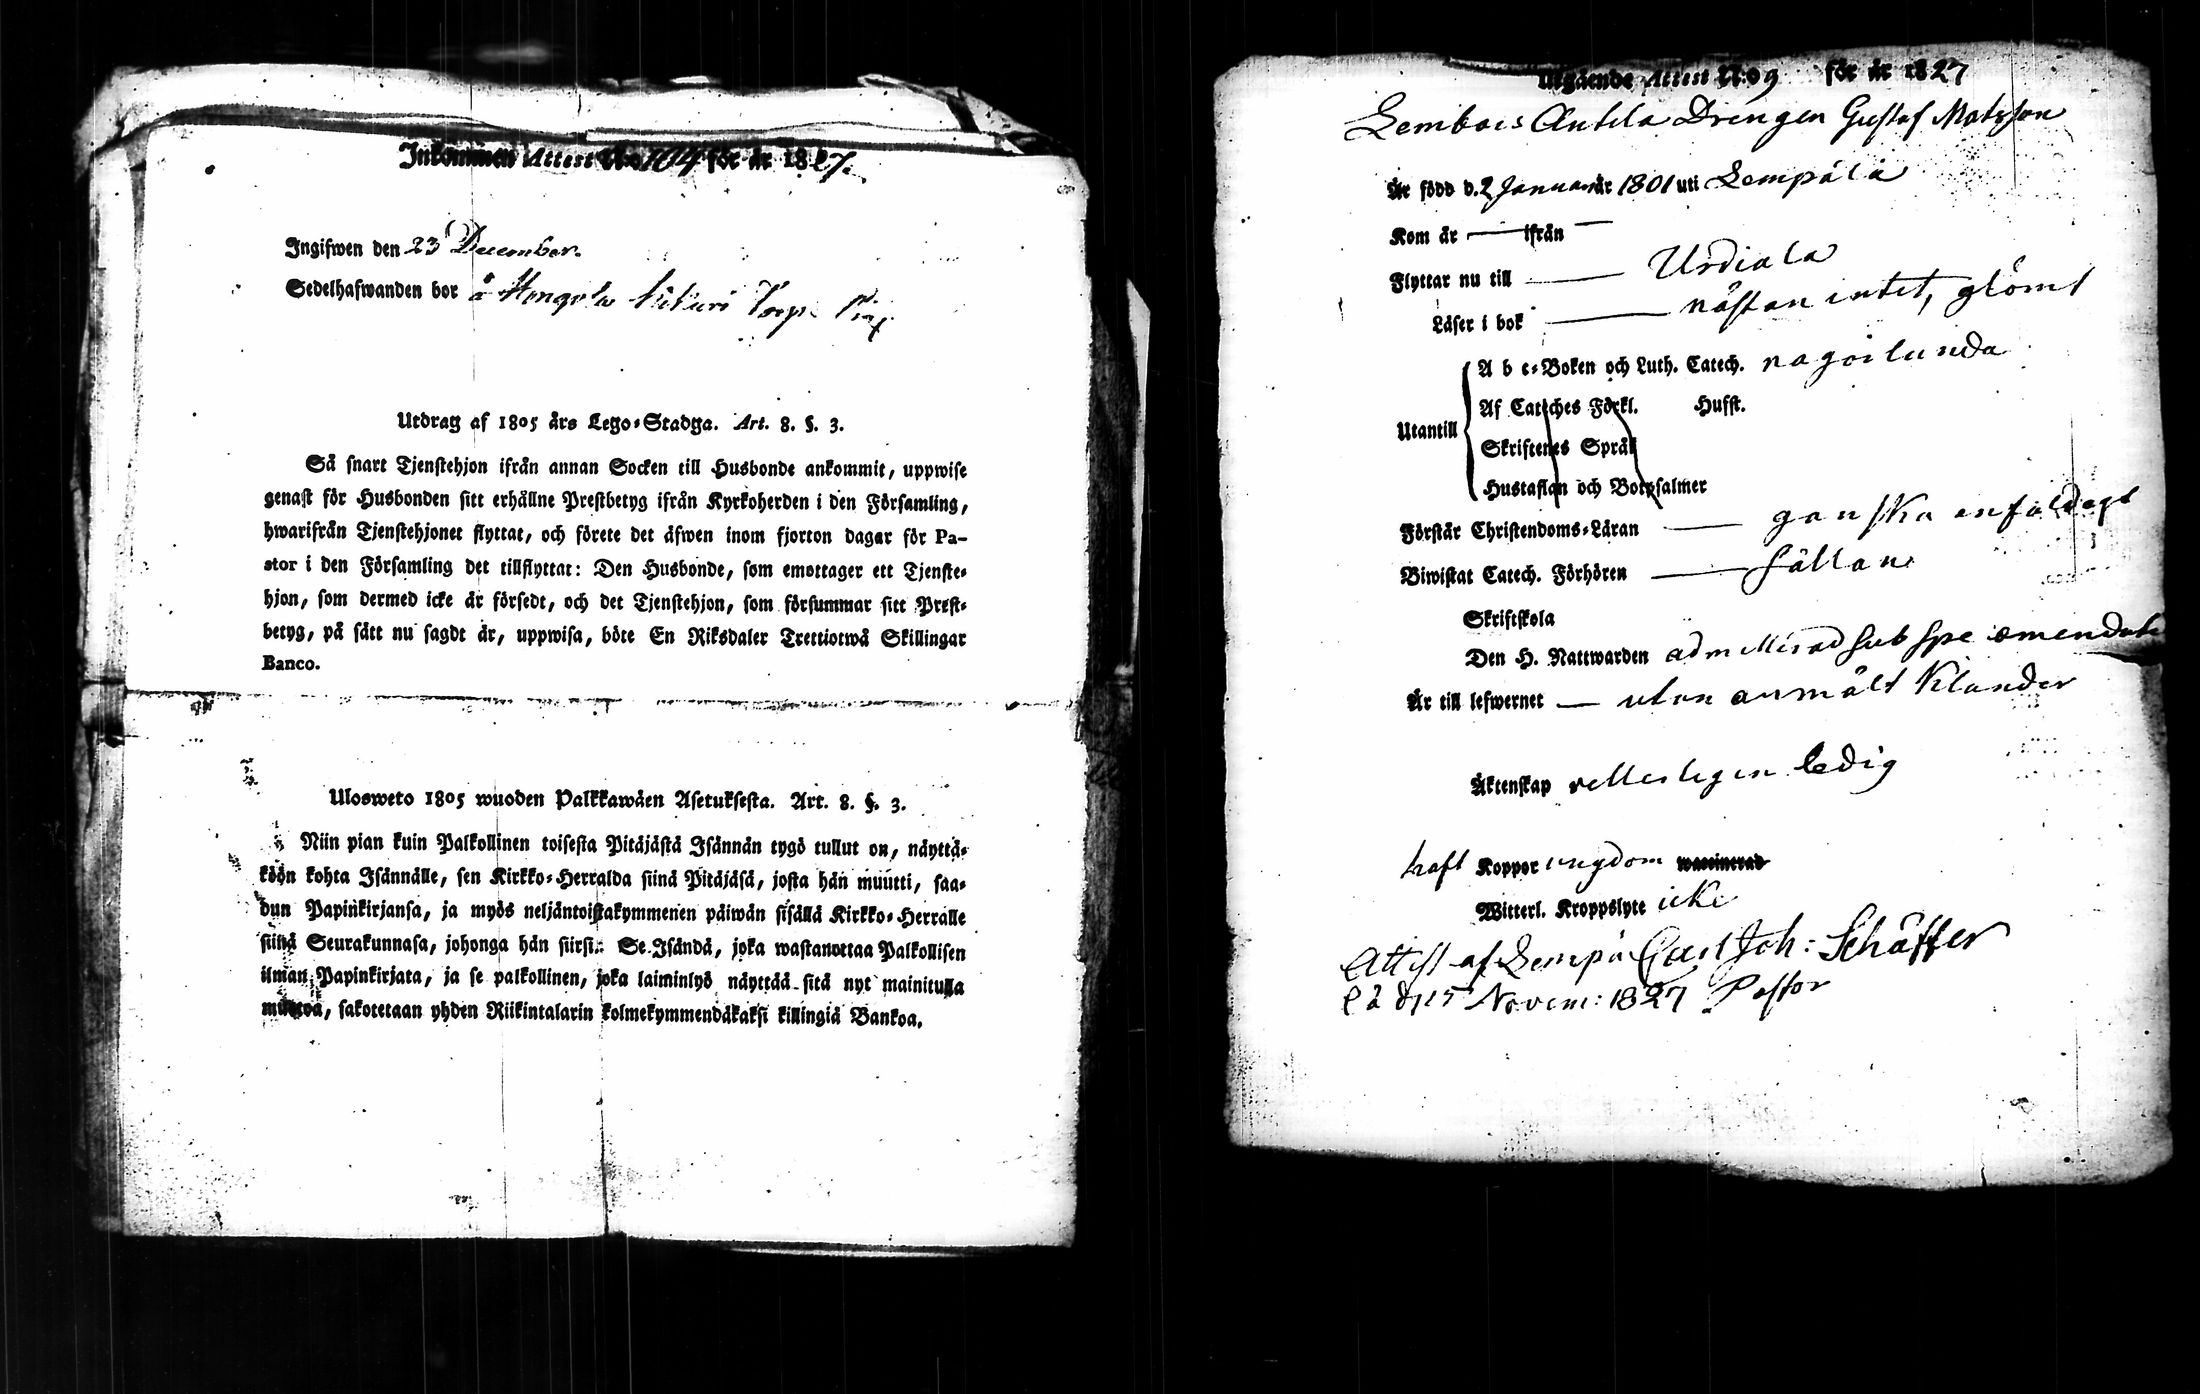 Inkommen Attest N:o 104 för år 1827.
Ingifwen den 23 December.
Sedelhafwanden bor å Torp
Utdrag af 1805 års Lego-Stadga. Art. 8. §. 3.
Så snart Tjenstehjon ifrån annan Socken till Husbonde ankommit, uppwise
genast för Husbonden sitt erhållne Prestbetyg ifrån Kyrkoherden i den Församling,
hwarifrån Tjenstehjonet flyttat, och förete det äfwen inom fjorton dagar för Pa-
stor i den Församling det tillflyttat: Den Husbonde, som emottager ett Tjenste-
hjon, som dermed icke är försedt, och det Tjenstehjon, som försummar sitt Prest-
betyg, på sätt nu sagdt är, uppwisa, böte En Riksdaler Trettiotwå Skillingar
Banco.
Ulosweto 1805 wuoden Palkkawäen Asetuksesta. Art. 8. §. 3.
Niin pian kuin Palkollinen toisesta Pitäjästä Isännän tygö tullut on, näyttä-
köön kohta Isännälle, sen Kirkko-Herralda siinä Pitäjäsä, josta hän muutti, saa-
dun Papinkirjansa, ja myös neljäntoistakymmenen päiwän sisällä Kirkko-Herralle
siinä Seurakunnasa, johonga hän siirsi. Se Isändä, joka wastanottaa Palkollisen
ilman Papinkirjata, ja se palkollinen, joka laiminlyö näyttää sitä nyt mainitulla
muotoa, sakotetaan yhden Riikintalarin kolmekymmendäkaksi killingiä Bankoa.
Utgående Attest N:o 9 för år 1827
Lembois Antila Drengen Gustaf Matsson
Är född d. 2 Januari år 1801 uti Lempälä
Kom år — ifrån —
Flyttar nu till — Urdiala
Läser i bok — nästan intet, glömt
A b c-Boken och Luth. Catech. någorlunda
Af Cateches Förkl. Husst.
Utantill
Skriftenes Språk
Hustaflan och Botpsalmer
Förstår Christendoms-Läran — ganska enfaldigt
Biwistat Catech. Förhören — sällan
Skriftskola
Den H. Nattwarden admitterad sub spe emendat
Är till lefwernet — utan anmält klander
Äktenskap ledig
haft Koppor i ungdom waccinerad
Witterl. Kroppslyte icke
Attest. af Lempä Carl Joh: Schäffer
lä d. 15 Novem: 1827 Pastor